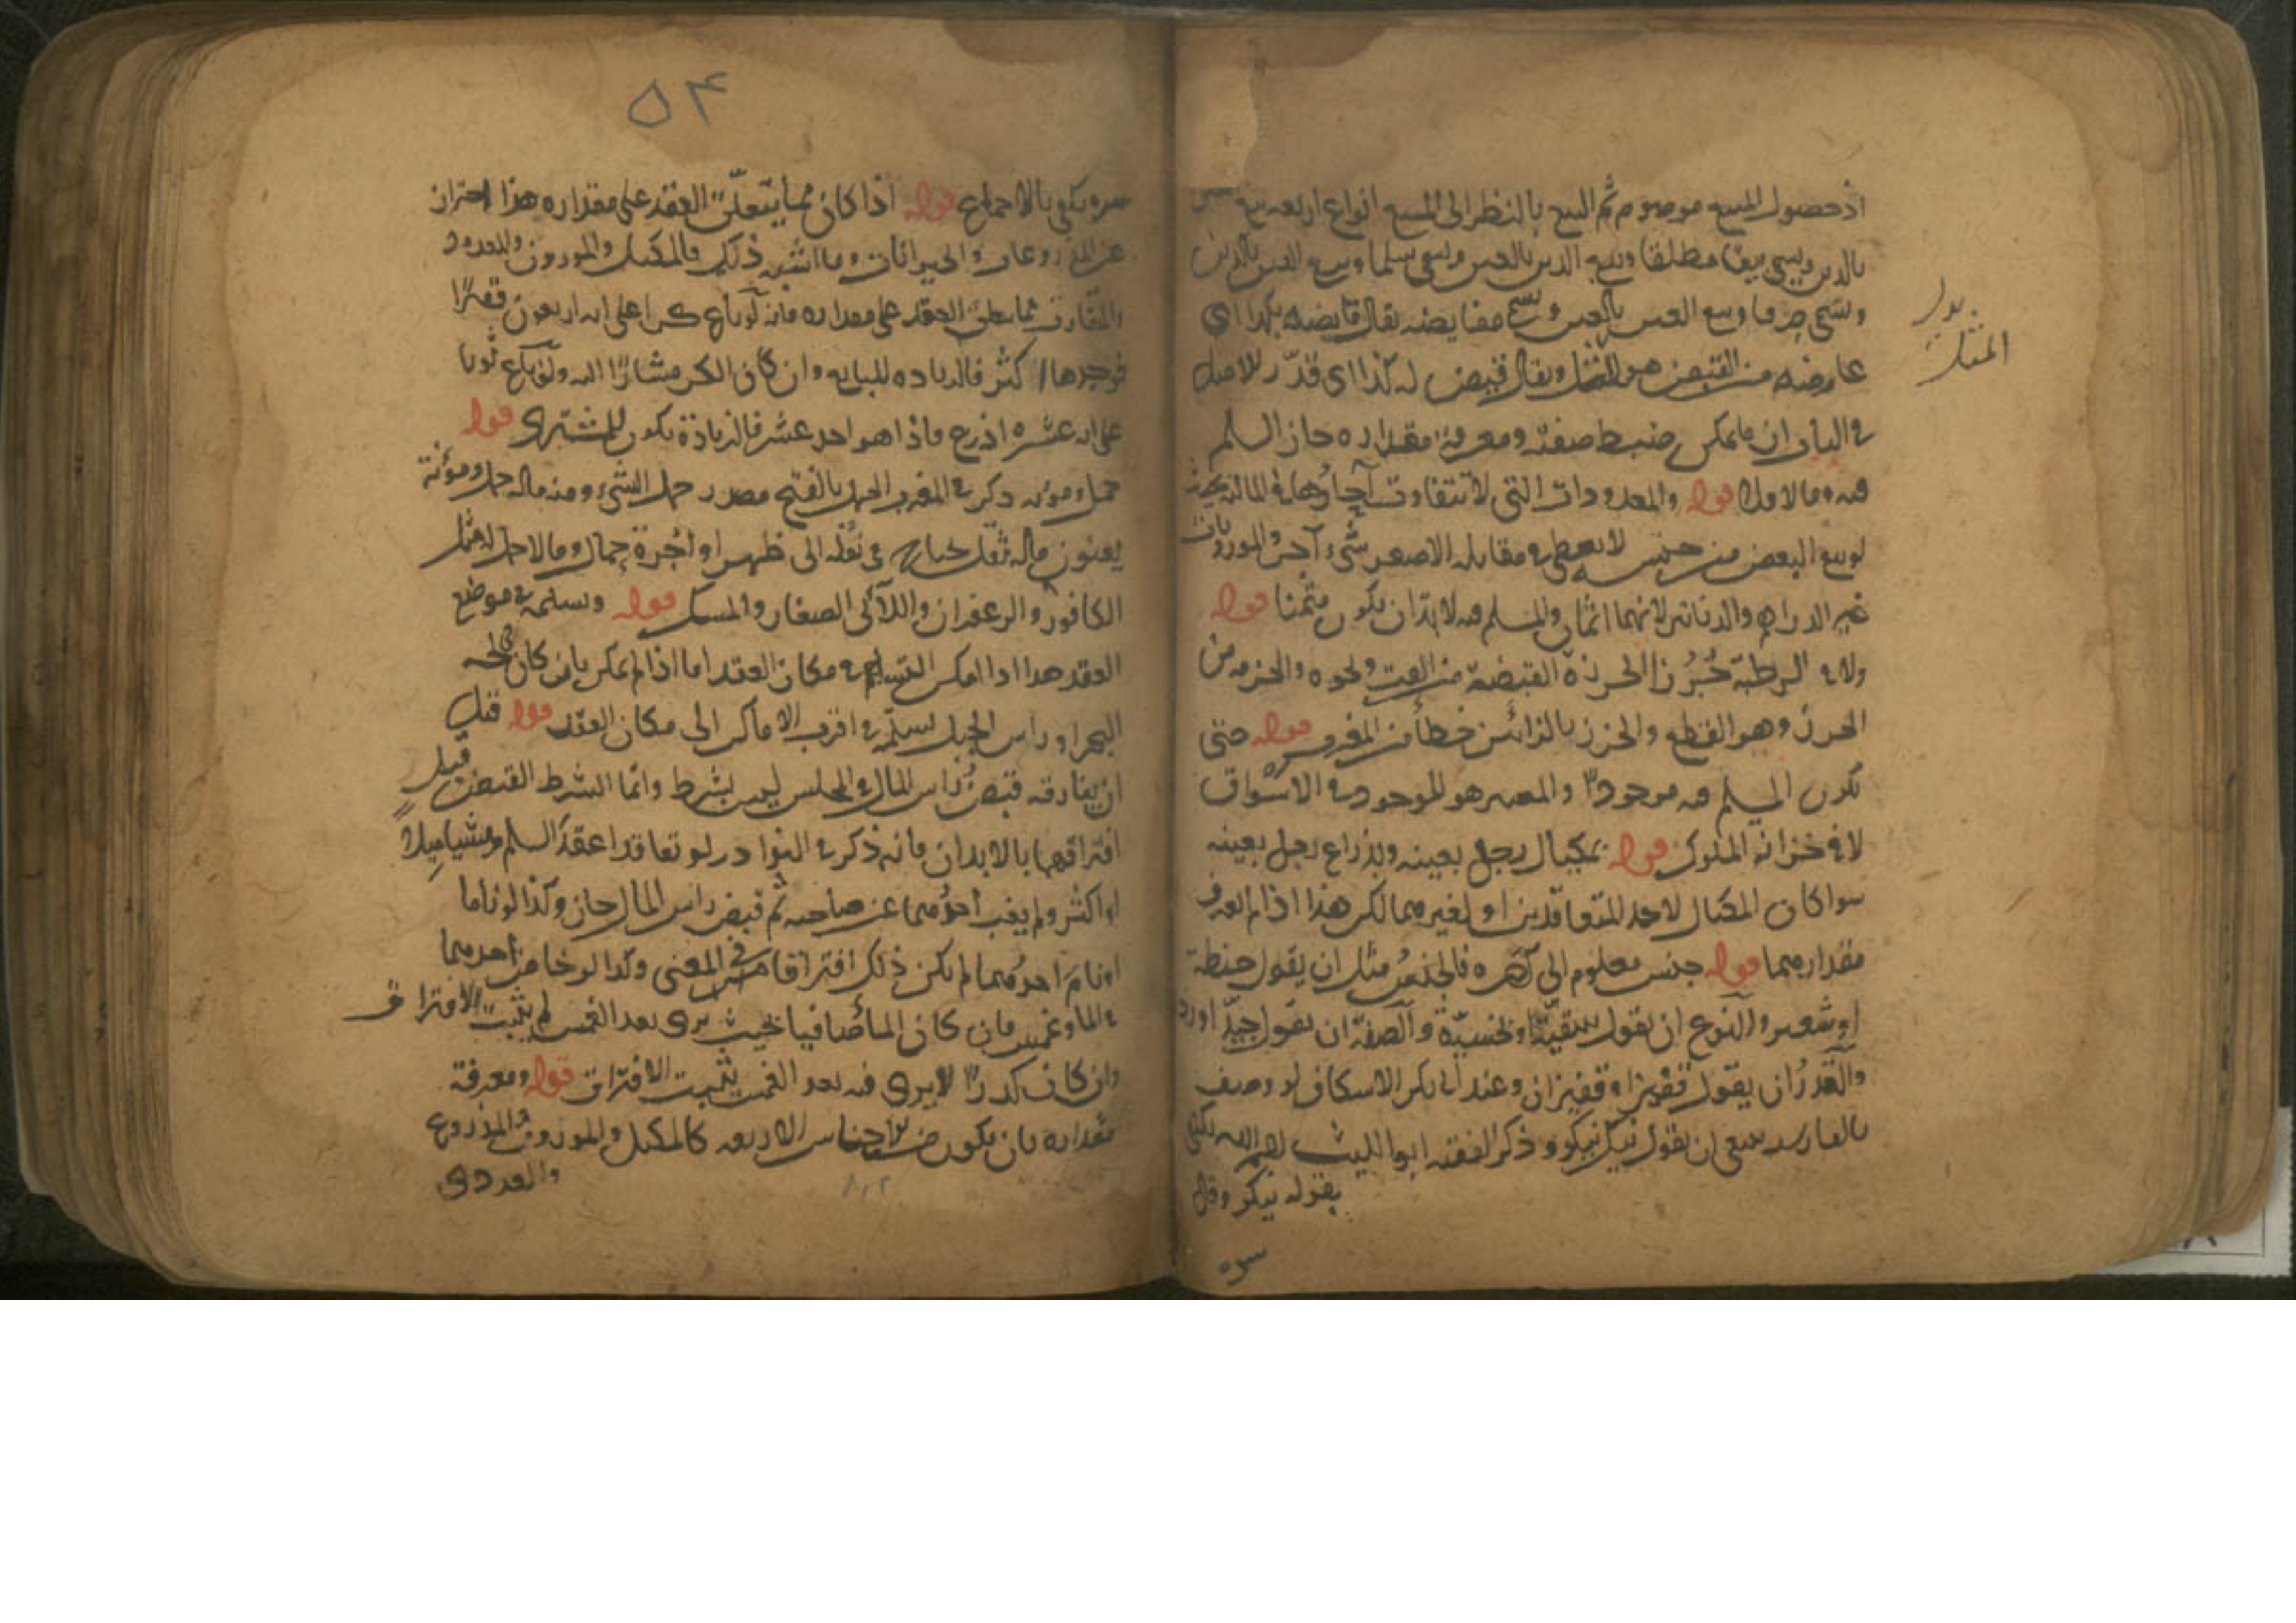 اذ حصول المبيع موهوم ثم البيع بالنظر الى المبيع انواع اربعه بيع العين
بالدين ويسمى بيعا مطلقا وبيع الدين بالعين ويسمى سلما وبيع الدين بالدين
ويسمى صرفا وبيع العين بالعين ويسمى مقايضه يقال قايضه بكذا اي
عاوضه من القيض هو المثل ويقال قيض له كذا اى قدّر للاصل
بدل
المثل
في الباب ان ما يمكن ضبط صفته ومعرفة مقداره جاز السلم
فيه وما لا فلا قوله والمعدودات التي لا تتفاوت آحادُها في الماليه بحيث
لو بيع البعض من جنسه لا يعطى في مقابله الاصغر شىء آخر والموزونات
غير الدراهم والدنانير لانهما اثمان والمسلم فيه لا بدّ ان يكون مثمنا قوله
ولا في الرطبة جُرُزا الجرزة القبضة من القت ونحوه والحزمه من
الجرز وهو القطع والخرز بالزائين خطأ من المغرب قوله حتى
يكون المسلم فيه موجودًا والمعتبر هو الموجود في الاسواق
لا في خزانه الملوك قوله بمكيال رجل بعينه وبذراع رجل بعينه
سوا كان المكيال لاحد المتعاقدين او لغيرهما لكن هذا اذا لم يعرف
مقدارهما قوله جنس معلوم الى آخره فالجنس مثل ان يقول حنطة
او شعير والنوع ان يقول سقيّة او بخسيّة والصفة ان يقول جيّد او ردي
والقدرُ ان يقول قفيزا وقفيزان وعند ابى بكر الاسكاف لو وصف
بالفارسيه ينبغى ان يقول نيك نيكو وذكر الفقيه ابو الليث نصر انه يكتفى
بقوله نيكو وقال
۵۴
سره يكفي بالاجماع قوله اذا كان مما يتعلّق العقد على مقداره هذا احتراز
عن المذروعات والحيوانات وما اشبه ذلك فالمكيل والموزون والمعدود
المتقارب مما يتعلق العقد على مقداره فانه لو باع كرا على انه اربعون قفيزًا
فوجدها اكثر فالزياده للبايع وان كان الكر مشارًا اليه ولو باع ثوبا
على انه عشره اذرع فاذا هو احد عشر فالزيادة يكون للمشترى قوله
حمل ومؤنه ذكر في المغرب الحمل بالفتح مصدر حمل الشىء ومنه ماله حمل ومؤنة
يعنون ماله ثقل يحتاج في نقله الى ظهر او اجرة حمال وما لا حمل له مثل
الكافور والزعفران واللآلى الصغار والمسك قوله ويسلمه في موضع
العقد هذا اذا امكن التسليم في مكان العقد اما اذا لم يمكن بان كان في لجه
البحر او راس الجبل يسلمه في اقرب الاماكن الى مكان العقد قوله قبل
ان يفارقه قبضُ راس المال في المجلس ليس بشرط وانما الشرط القبض قبل
افتراقهما بالابدان فانه ذكر في النوادر لو تعاقدا عقد السلم ومشيا ميلا
او اكثر ولم يغب احدهما عن صاحبه ثم قبض راس المال جاز وكذا لو ناما
او نام احدهما لم يكن ذلك افتراقا في المعنى وكذا لو خاض احدهما
في الما وغمس فان كان الما صافيا بحيث يرى بعد الغمس لم يثبت الافتراق
وان كان كدرًا لا يرى فيه بعد الغمس يثبت الافتراق قوله ومعرفة
مقداره بان يكون من الاجناس الاربعه كالمكيل والموزون والمذروع
والعددى